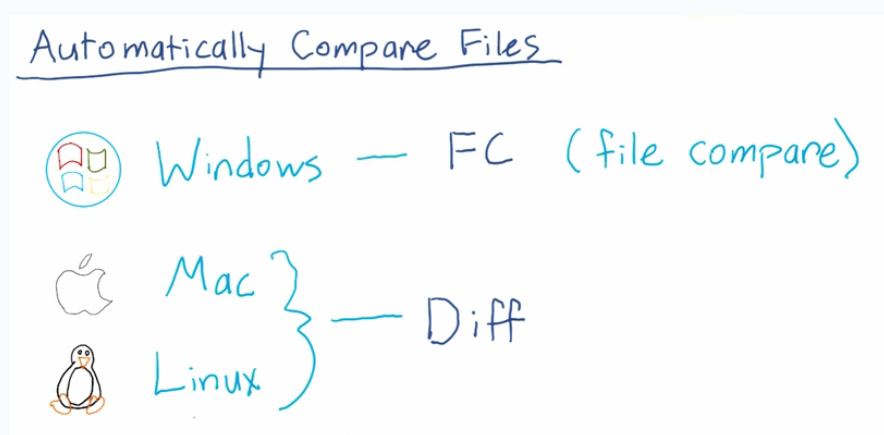 Automatically Compare Files
Windows — FC (file compare)
Mac
} — Diff
Linux